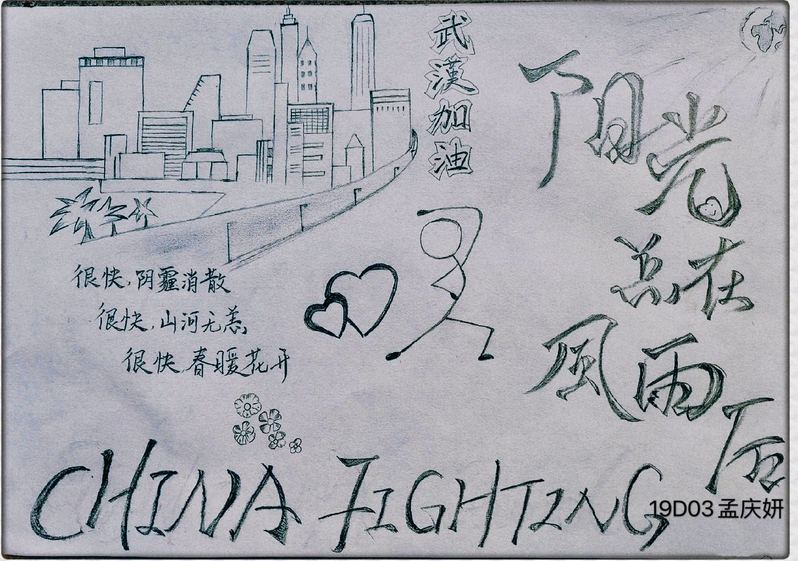 武漢加油
阳光
总在
風雨
后
很快,阴霾消散
很快,山河无恙
很快,春暖花开
CHINA FIGHTING
19D03 孟庆妍